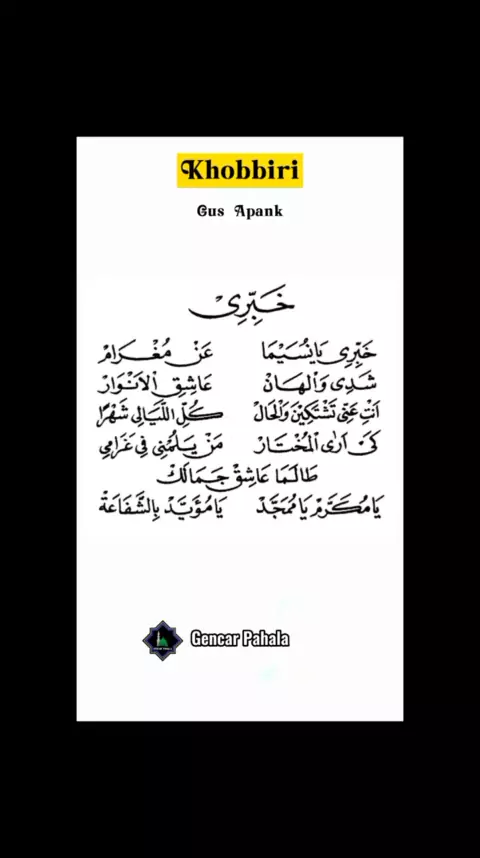 Khobbiri
Gus Apank
خَبِّرِىْ
خَبِّرِي يَانُسَيْمَا عَنْ مُغْرَامْ
شَدِى وَالْهَانْ عَاشِقِ الْاَنْوَارْ
اَنْتِ عَنِّى تَشْتَكِيْنَ وَالْحَالْ كُلِّ اللَّيَالِى شَهْرًا
كَىْ اَرَى الْمُخْتَارْ مَنْ يَلُمْنِى فِى غَرَامِي
طَالَمَا عَاشِقْ جَمَالَكْ
يَامُكَرَّمْ يَامُمَجَّدْ يَامُؤَيَّدْ بِالشَّفَاعَةْ
Gencar Pahala